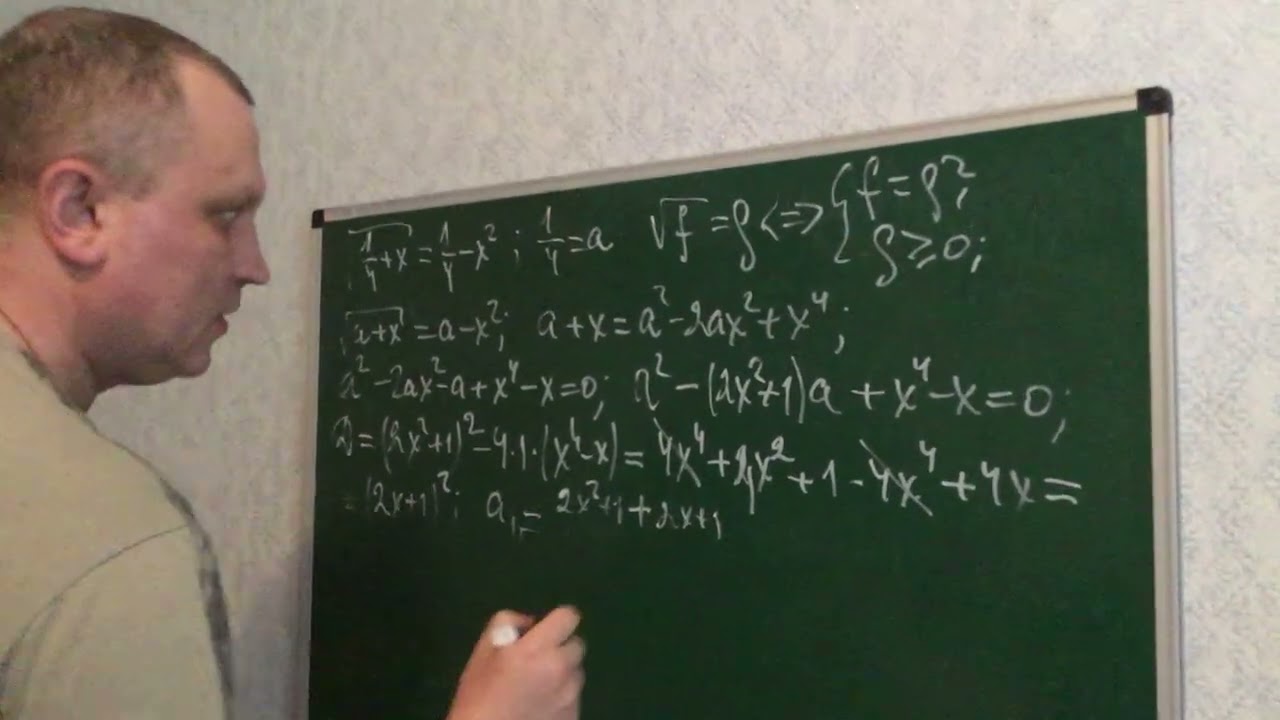 √(1/4+x) = 1/4 - x²; 1/4 = a √f = g <=> { f = g²; g ≥ 0;
√(a+x) = a - x²; a + x = a² - 2ax² + x⁴;
a² - 2ax² - a + x⁴ - x = 0; a² - (2x²+1)a + x⁴ - x = 0;
D = (2x²+1)² - 4·1·(x⁴-x) = 4x⁴ + 4x² + 1 - 4x⁴ + 4x =
= (2x+1)²; a₁ = 2x²+1+2x+1